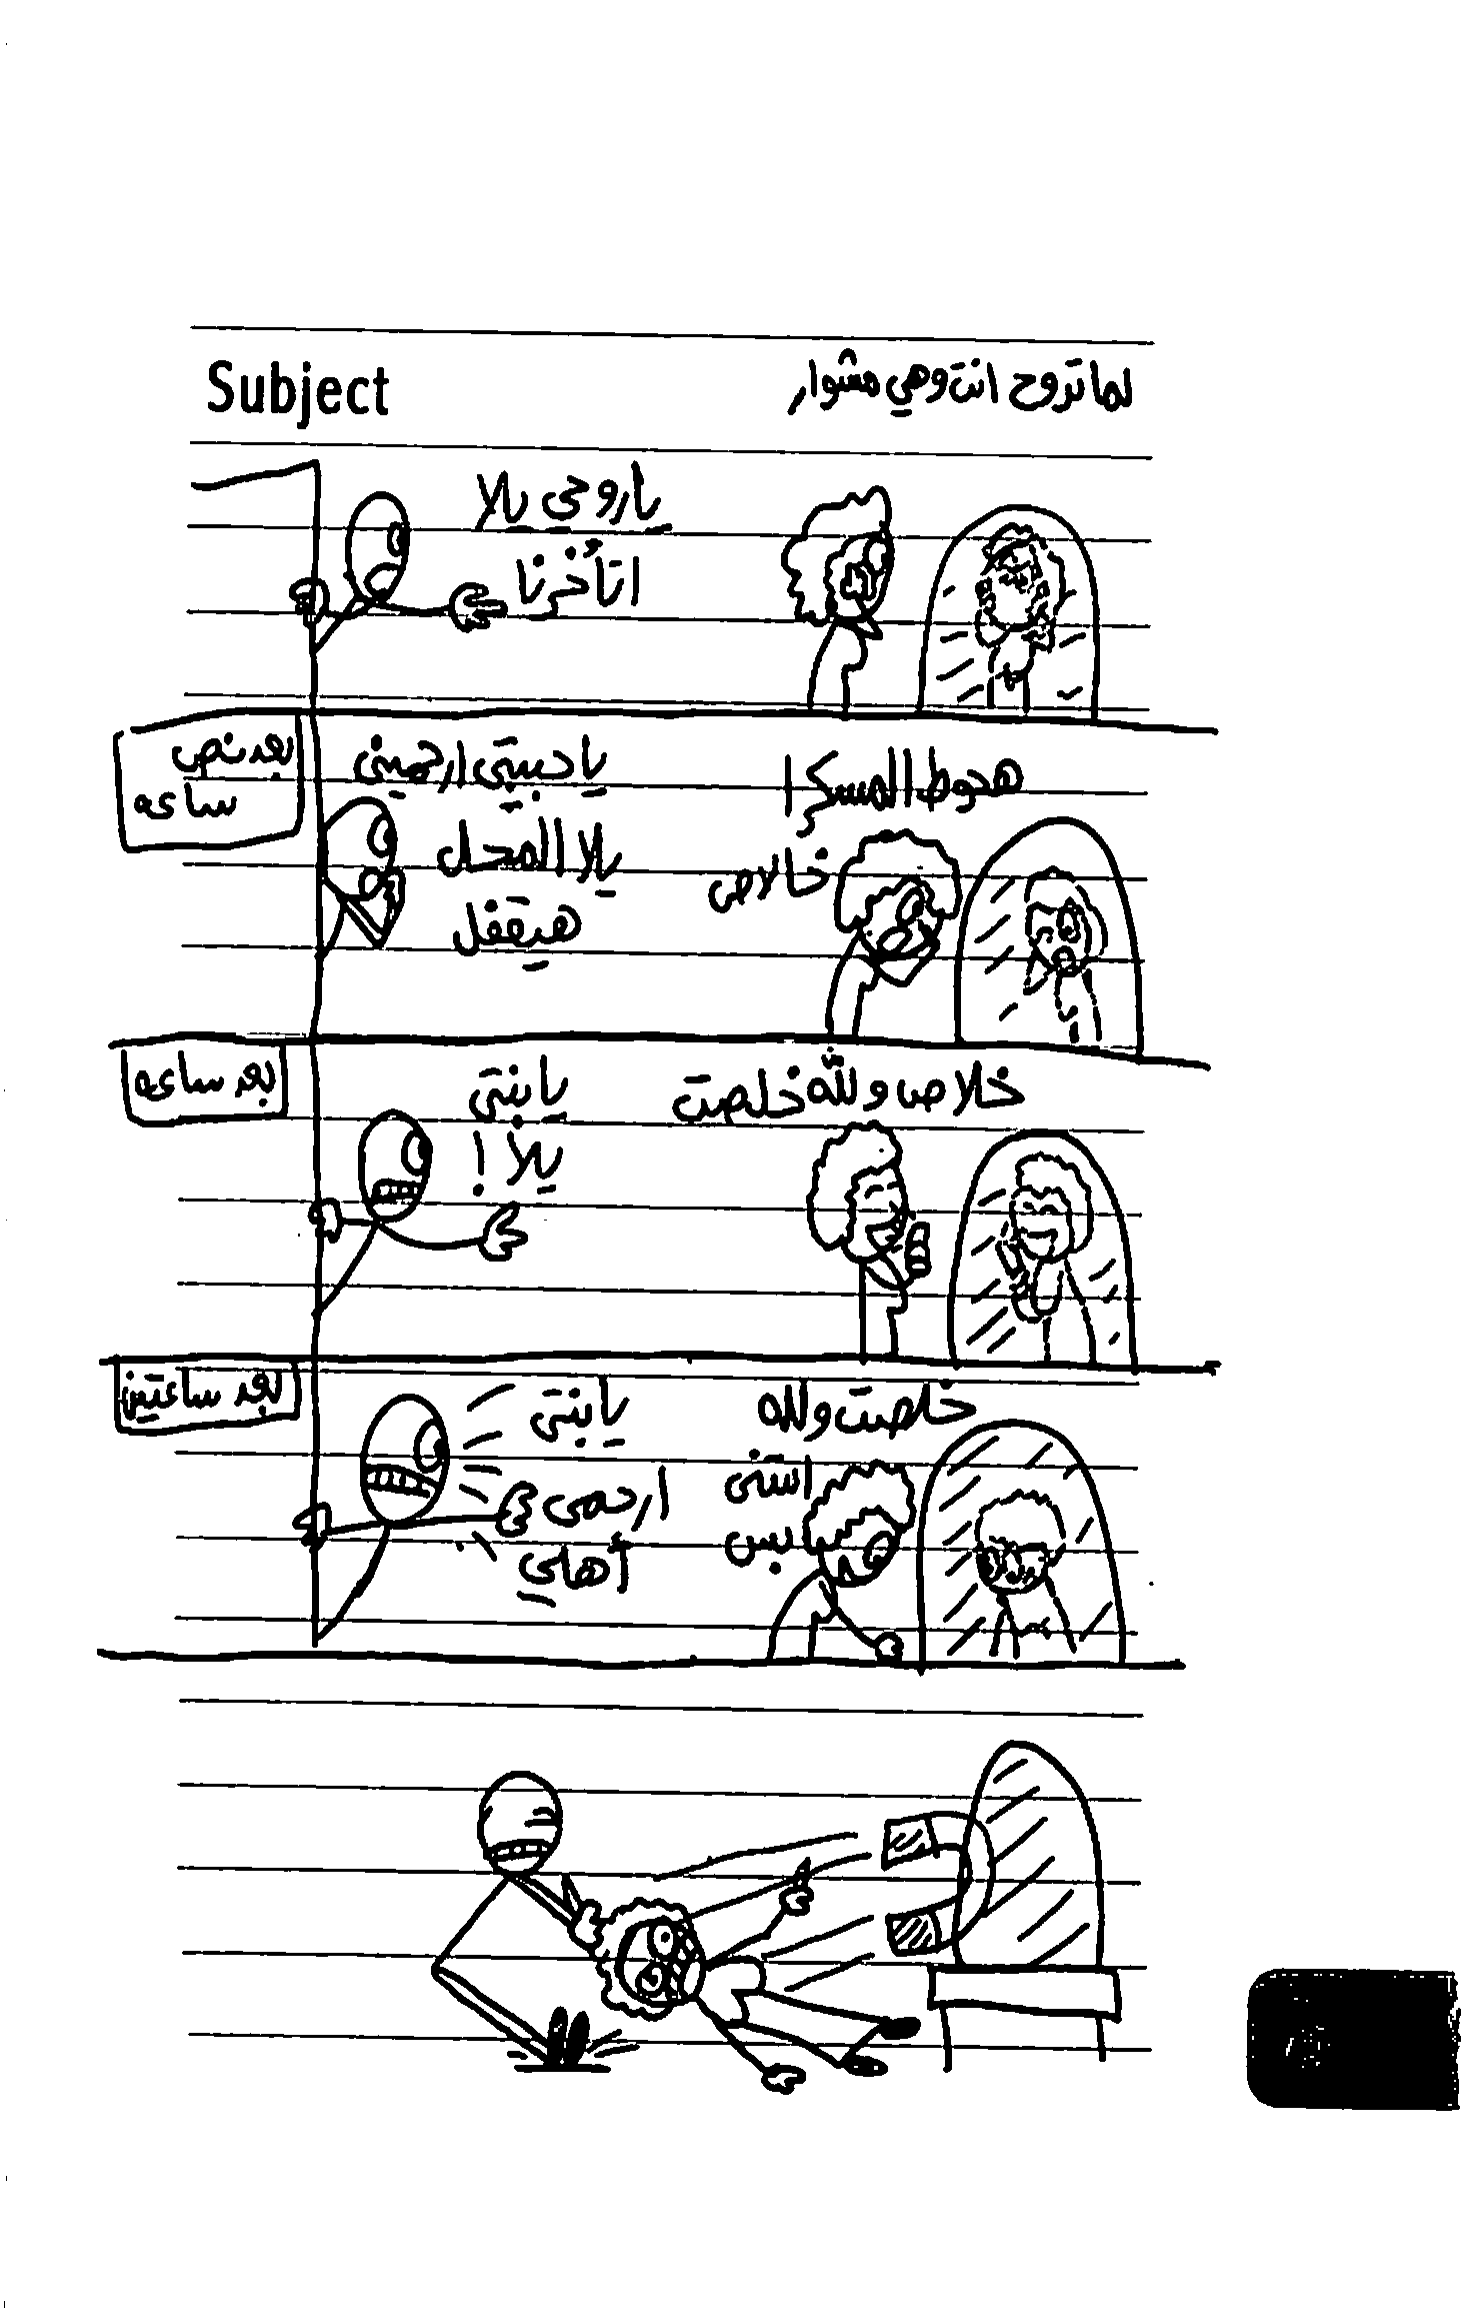 Subject
لما تروح انت وهي مشوار
ياروحي يالا
اتأخرنا
بعد نص
ساعه
يا حبيبتي ارحميني
يالا المحل
هيقفل
هحوط المسكرا
خالاص
بعد ساعه
يا بنتي
يالا !
خلاص والله خلصت
بعد ساعتين
يا بنتي
ارحمي
أهلي
خلصت والله
استني
بس